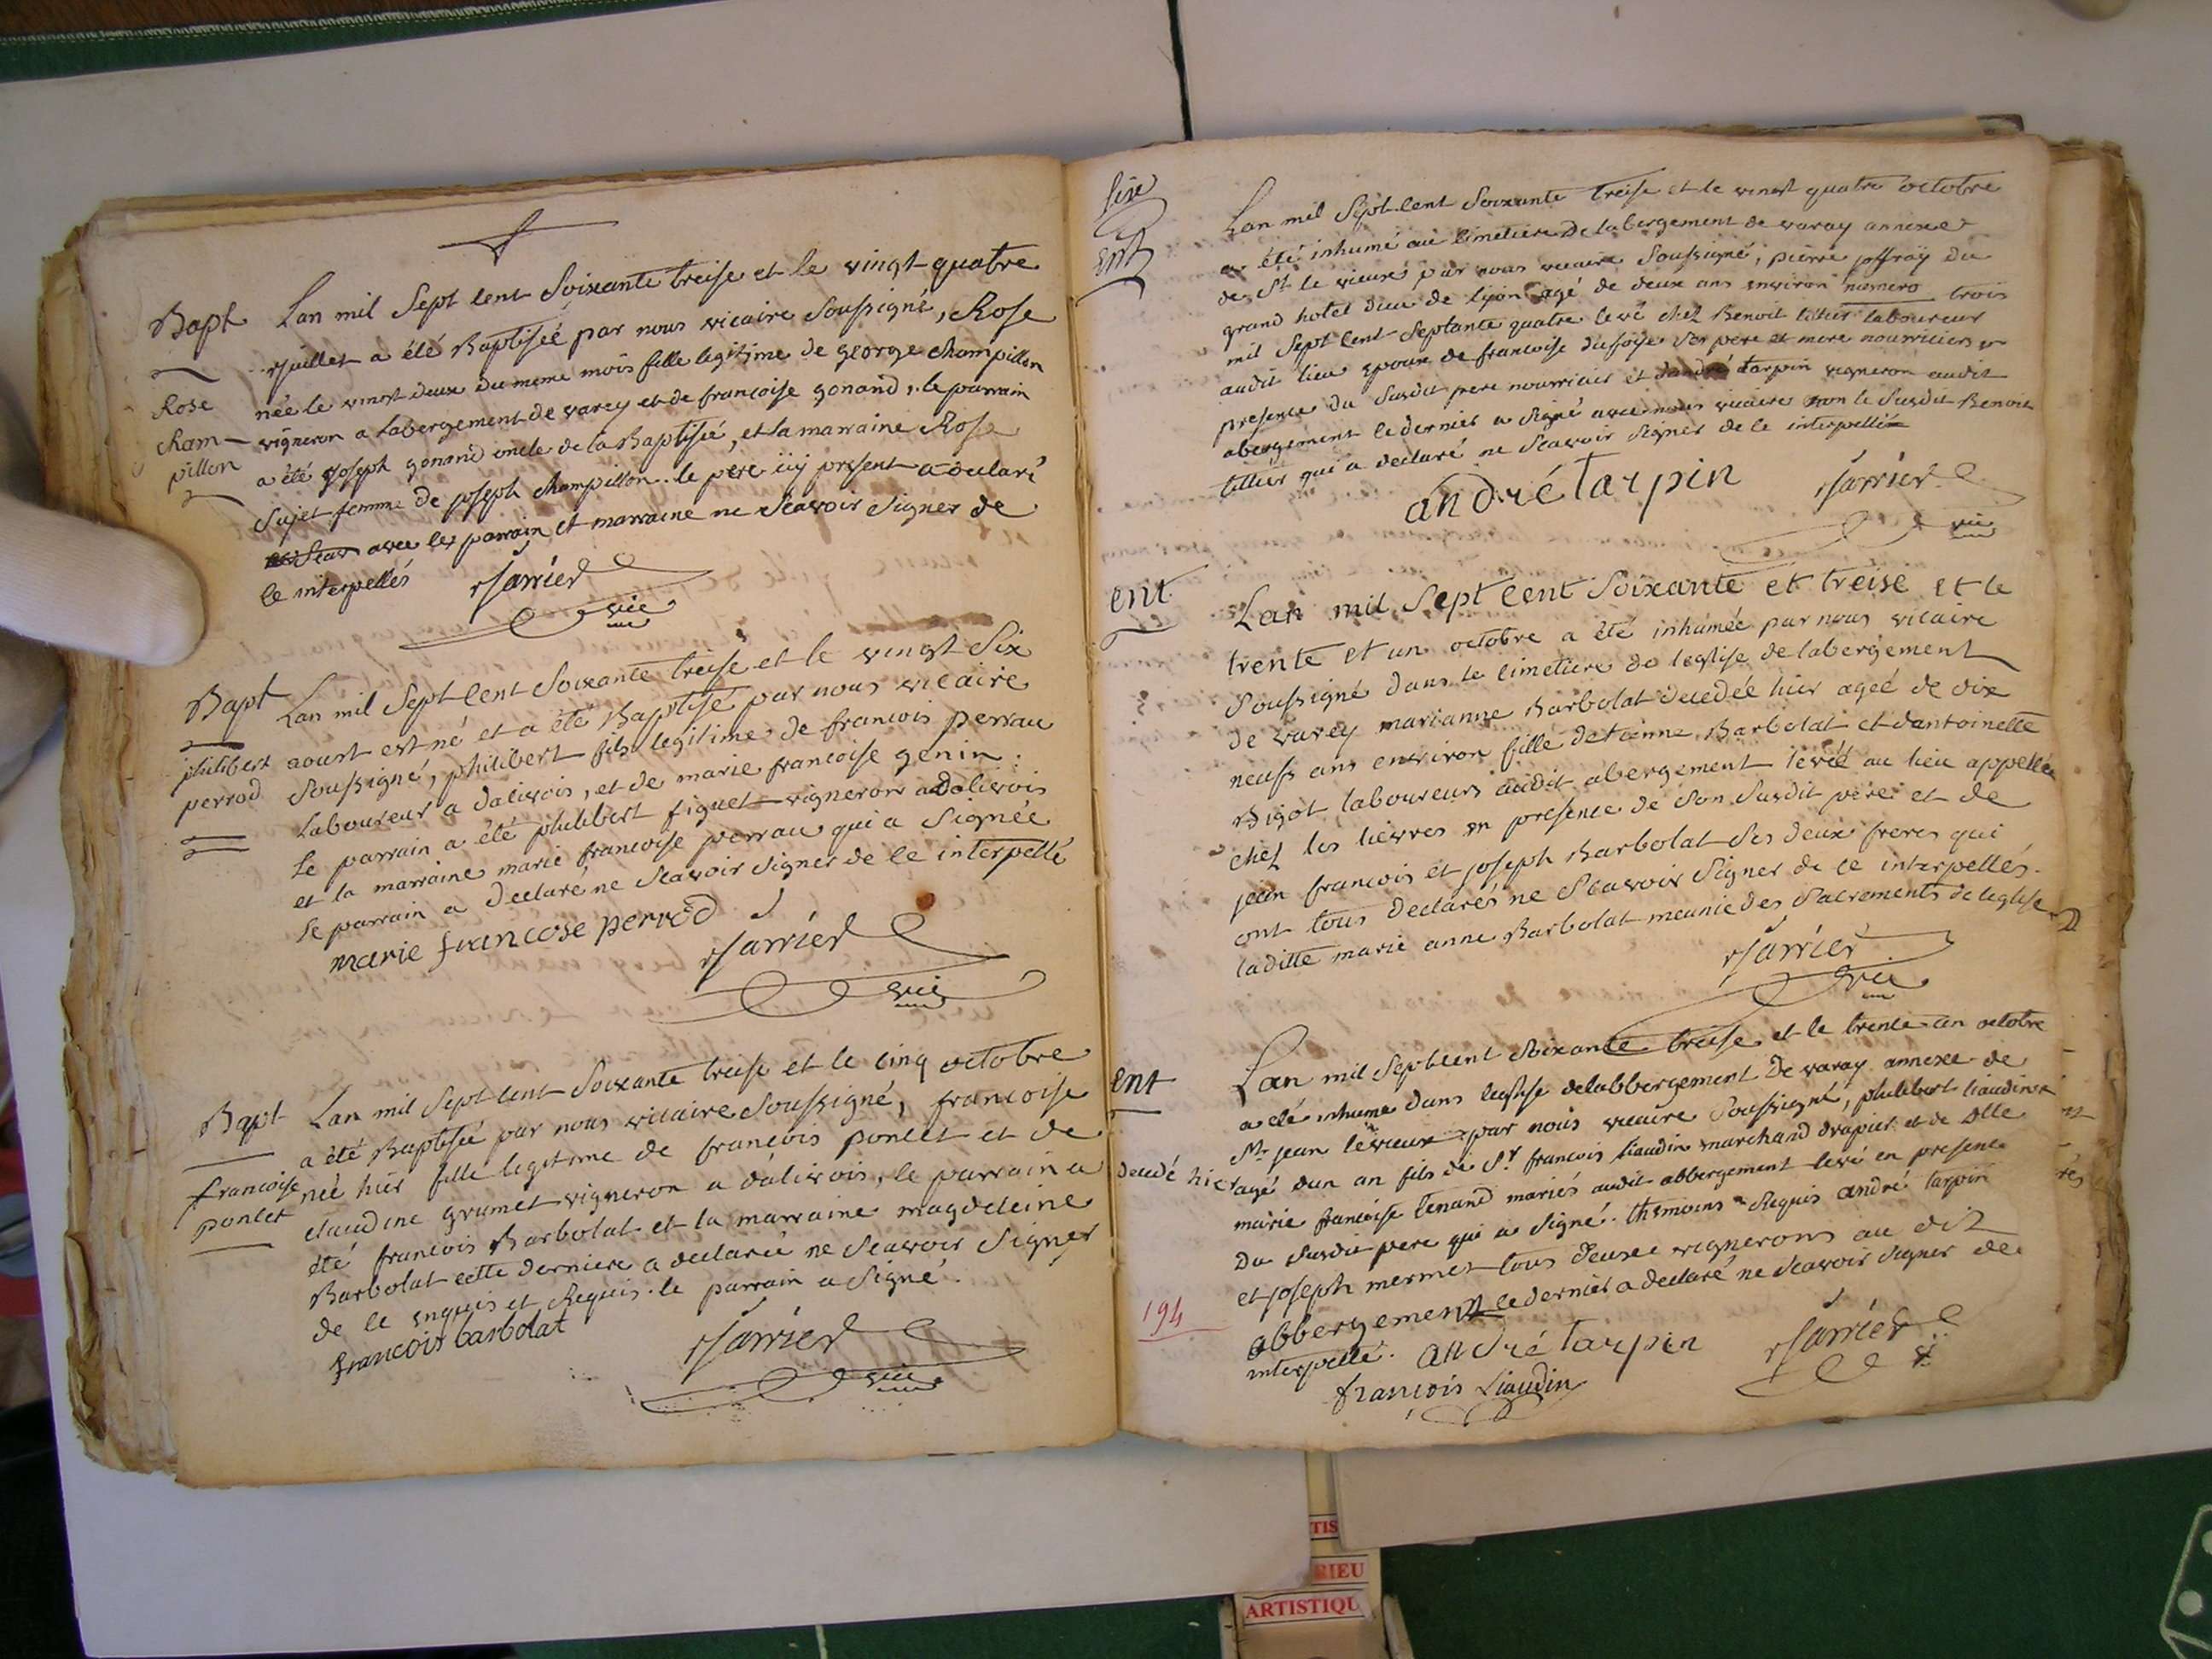 Bapt
Rose
Cham-
pillon
Lan mil Sept Cent Soixante treise et le vingt-quatre
juillet a été Baptisée par nous vicaire Soussigné, Rose
née le vingt deux du meme mois fille legitime de george champillon
vigneron a Labergement de varey et de francoise gonand, le parrain
a été joseph gonand oncle de la Baptisée, et la marraine Rose
Sujet femme de joseph champillon. le pere icy present a declaré
avec les parrain et marraine ne Scavoir Signer de
ce interpellés
Sarrier
vic
Bapt
philibert
perrod
Lan mil Sept Cent Soixante treise et le vingt Six
aoust est né et a été Baptisé par nous vicaire
Soussigné, philibert fils legitime de francois perrau
Laboureur a dalivois, et de marie francoise genin.
Le parrain a été philibert figuet vigneron a dalivois
et la marraine marie francoise perrau qui a Signée
le parrain a Declaré ne Scavoir Signer de ce interpellé
marie francose perrod
Sarrier
vic
Bapt
francoise
poncet
Lan mil Sept Cent Soixante treise et le cinq octobre
a été Baptisée par nous vicaire Soussigné, francoise
née hier fille legitime de francois poncet et de
claudine grumet vigneron a dalivois, le parrain a
été francois Barbolat et la marraine magdeleine
Barbolat cette derniere a declarée ne Scavoir Signer
de ce enquis et Requis. le parrain a Signé.
francois barbolat
Sarrier
vic
Six
ent
Lan mil Sept Cent Soixante treise et le vingt quatre octobre
a été inhumé au Cimetiere De labergement de varay annexe
de St le vieux par nous vicaire Soussigné, pierre joffray du
grand hotel dieu de lyon agé de deux ans environ numero trois
mil Sept Cent Septante quatre levé chez Benoit laboureur
audit lieu epoux de francoise Ses pere et mere nourriciers
presence du Susdit pere nourricier et dandré tarpin vigneron audit
abergement le dernier a Signé avec nous vicaire non le Susdit Benoit
qui a declaré ne Scavoir Signer de ce interpellé
andré tarpin
Sarrier
vic
ent
Lan mil Sept Cent Soixante et treise et le
trente et un octobre a été inhumée par nous vicaire
Soussigné dans le Cimetiere de leglise de labergement
de varey marianne Barbolat decedée hier ageé de dix
neufs ans environ fille detienne Barbolat et dantoinette
Bigot laboureurs audit abergement levée au lieu appellée
chez les lievres en presence de Son Susdit pere et de
jean francois et joseph Barbolat Ses deux freres qui
ont tous declarés ne Scavoir Signer de ce interpellés.
laditte marie anne Barbolat meunie des Sacrements de leglise
Sarrier
vic
ent
decedé hier
Lan mil Septcent Soixante treise et le trente un octobre
a été inhumé dans leglise delabbergement De varay annexe de
St jean levieux par nous vicaire Soussigné, philibert liaudin
agé dun an fils de Sr francois liaudin marchand drapier et de Dlle
marie francoise tenand mariés audit abbergement levé en presence
Du Susdit pere qui a Signé. themoins Requis andré tarpin
et joseph mermet tous deuxe vignerons au dit
abbergement ce dernier a declaré ne Scavoir Signer de
interpellé.
andré tarpin
Sarrier
françois Liaudin
194
RIEU
ARTISTIQU